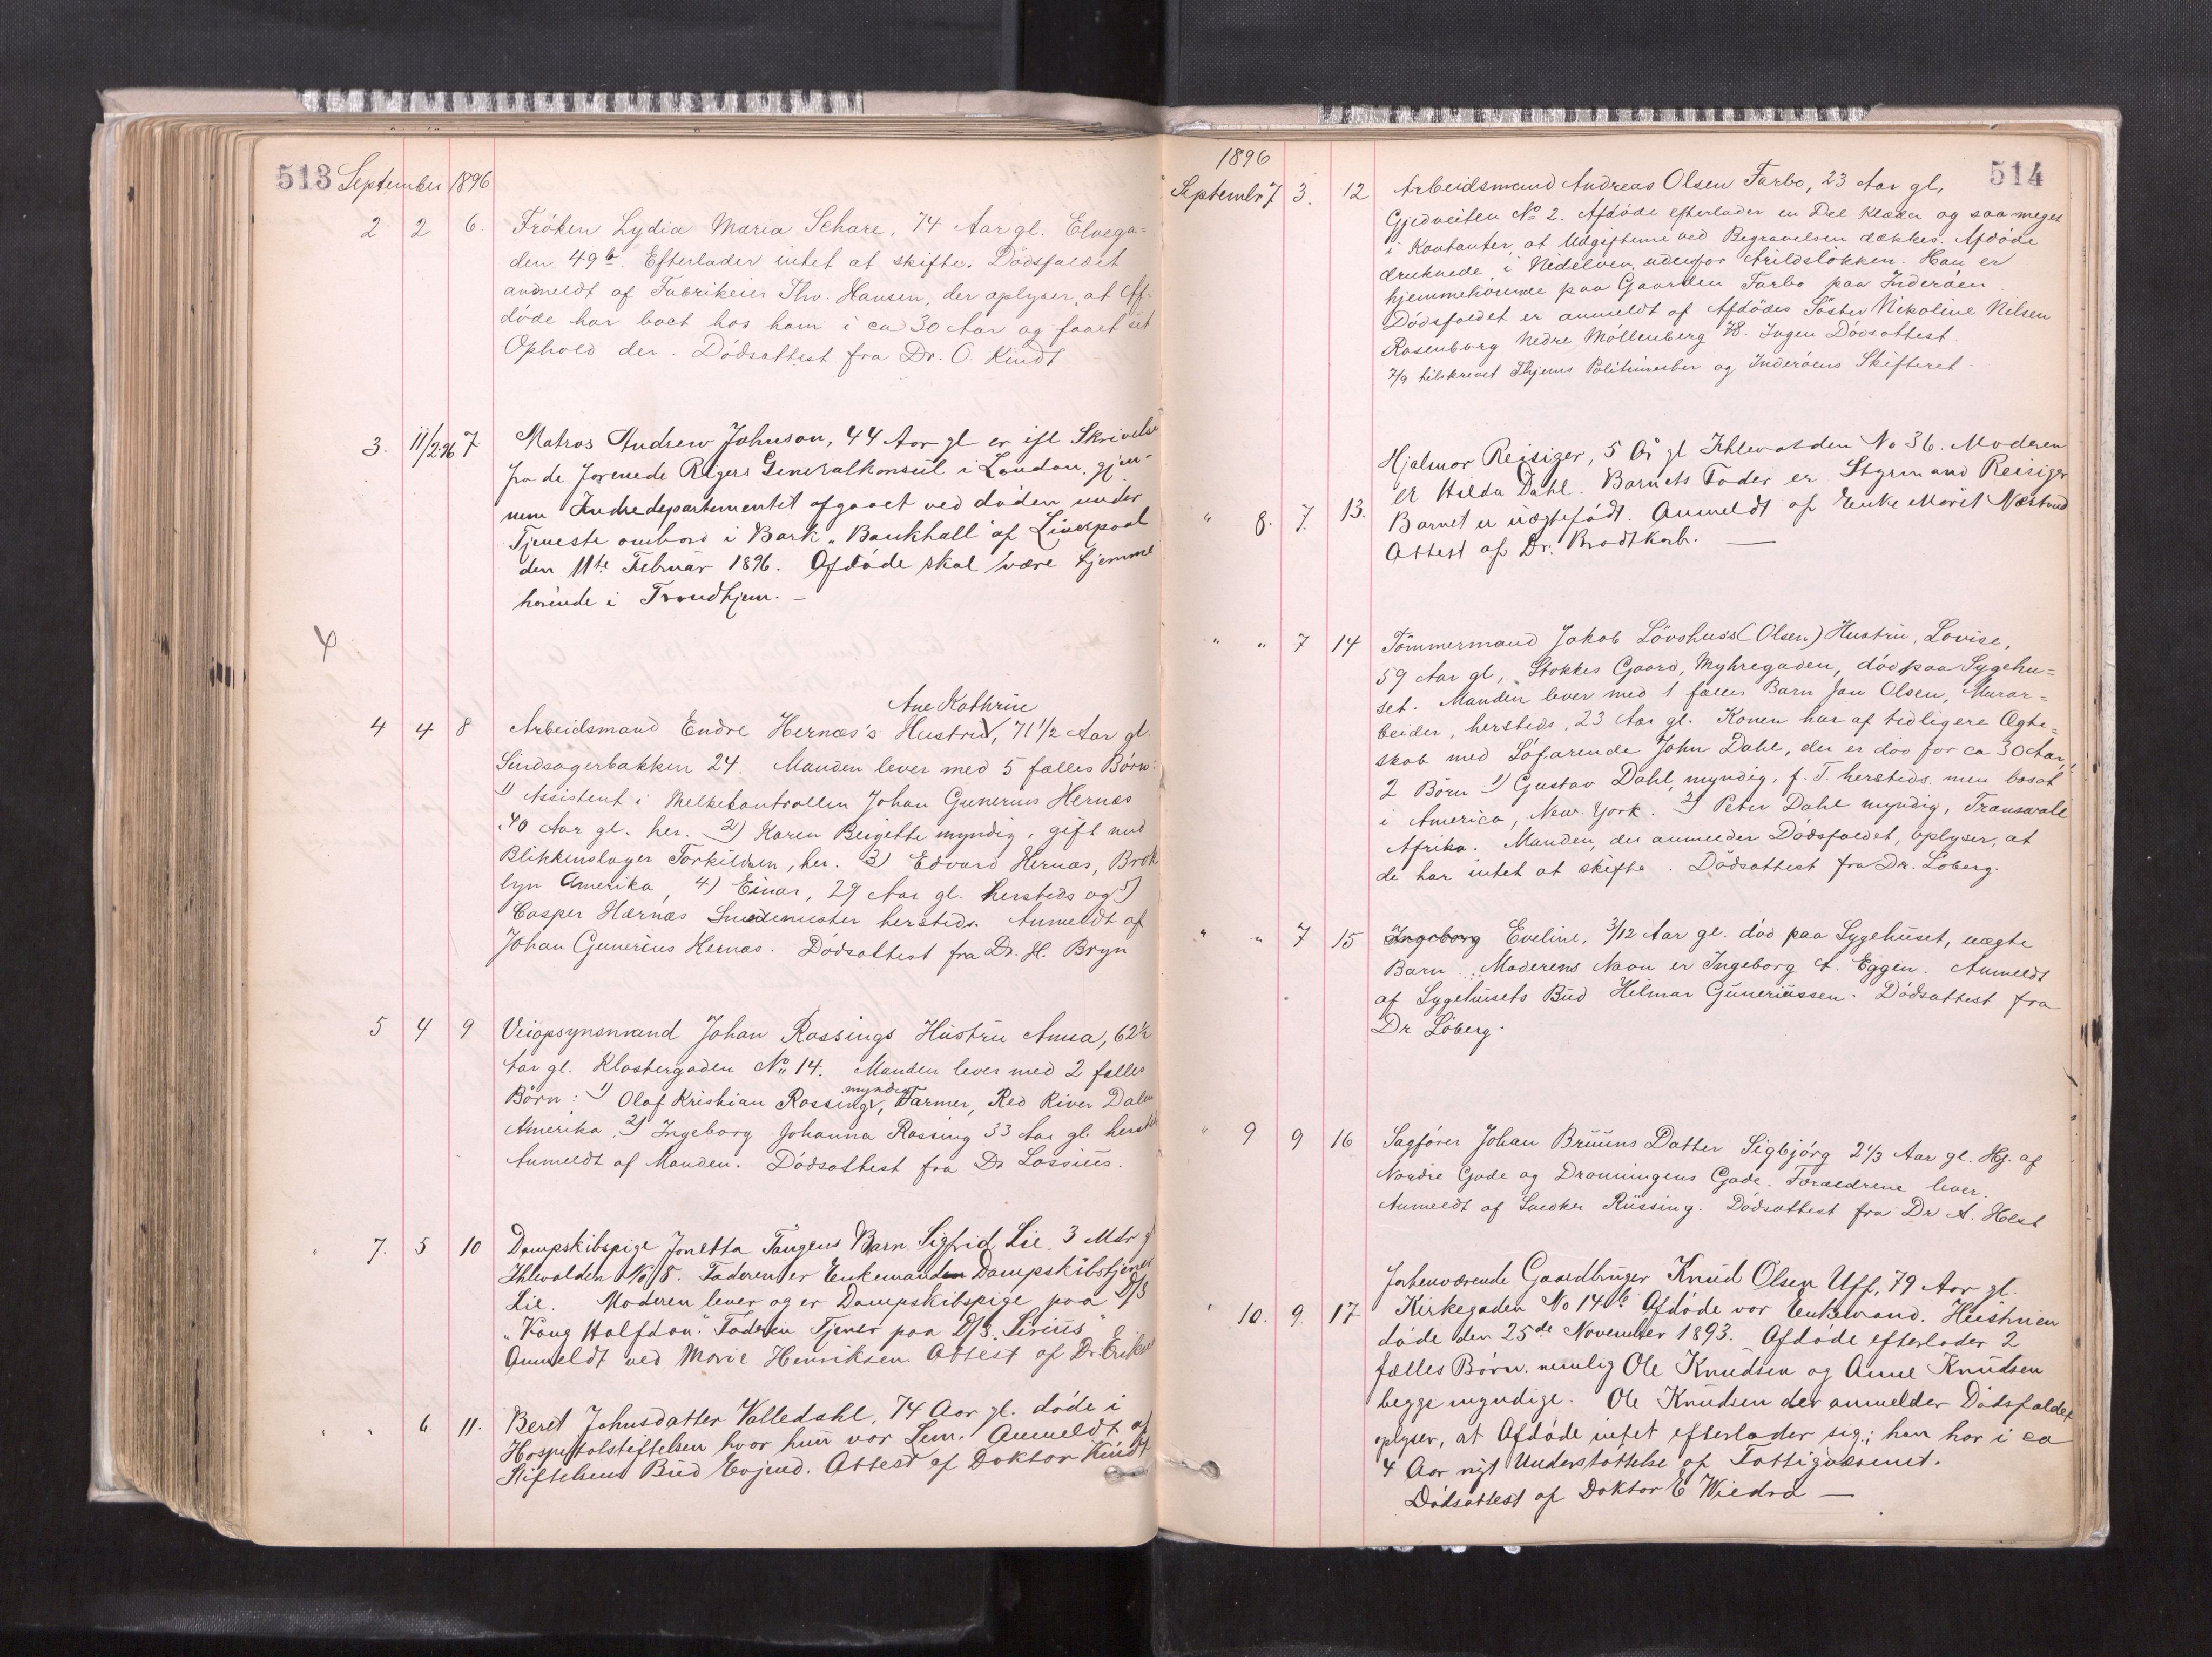 513 September 1896
2 2 6. Fröken Lydia Maria Schare, 74 Aar gl. Elvega=
den 49b. Efterlader intet at skifte. Dödsfaldet
anmeldt af Fabrikeier Thv. Hansen, der oplyser, at Af=
döde har boet hos ham i ca 30 Aar og faaet sit
Ophold der. Dödsattest fra Dr. O. Kindt
3. 11/2 96 7 Matros Andrew Johnson, 44 Aar gl er ifl Skrivelse
fra de forenede Rigers Generalkonsul i London, gjen-
nem Indredepartementet afgaaet ved döden under
Tjeneste ombord i Bark "Bankhall" af Liverpool
den 11te Februar 1896. Afdöde skal være hjemme
hörende i Trondhjem. –
Ane Kathrine
4 4 8 Arbeidsmand Endre Hernæs's Hustru, 71 1/2 Aar gl.
Sindsagerbakken 24. Manden lever med 5 fælles Börn:
1) Assistent i Melkekontrollen Johan Gunerius Hernæs
40 Aar gl. her. 2) Karen Bergitte myndig, gift med
Blikkenslager Torkildsen, her. 3) Edvard Hernæs, Brok
lyn Amerika, 4) Einar, 29 Aar gl. hersteds og 5)
Casper Hærnæs Snedkermester hersteds. Anmeldt af
Johan Gunerius Hernæs. Dödsattest fra Dr. H. Bryn
5 4 9 Veiopsynsmand Johan Rossings Hustru Anna, 62 1/2
Aar gl. Klostergaden No 14. Manden lever med 2 fælles
myndig
Börn: 1) Olaf Kristian Rossing, Farmer, Red River Dalen
Amerika 2) Ingeborg Johanna Rossing 33 Aar gl. hersteds
Anmeldt af Manden. Dödsattest fra Dr Lossius.
" 7. 5 10 Dampskibspige Jonetta Tangens Barn Sigfrid Lie, 3 Mdr g
Ihlevolden No 8. Faderen er Enkemand Dampskibstjener
Lie. Moderen lever og er Dampskibspige paa D/S
"Kong Halfdan". Faderen Tjener paa D/S. "Sirius"
Anmeldt ved Marie Henriksen. Attest af Dr.
" " 6 11. Beret Johnsdatter Valledahl, 74 Aar gl. döde i
Hospitalstiftelsen hvor hun var Lem. Anmeldt af
Stiftelsens Bud Evjend. Attest af Doktor Kindt
1896 514
Septembr 7 3. 12 Arbeidsmand Andreas Olsen Farbo, 23 Aar gl,
Gjedveiten No 2. Afdöde efterlader en Del Klæder og saa meget
i Kontanter, at Udgifterne ved Begravelsen dækkes. Afdöde
druknede i Nidelven, udenfor Arildslökken. Han er
hjemmehörende paa Gaarden Farbo paa Inderöen.
Dödsfaldet er anmeldt af Afdödes Söster Nikoline Nilsen
Rosenborg Nedre Möllenberg 78. Ingen Dödsattest.
7/9 tilskrevet Thjems Politimester og Inderöens Skifteret.
" 8. 7. 13. Hjalmar Reisiger, 5 År gl Ihlevolden No 36. Moderen
er Hilda Dahl. Barnets Fader er Styrmand Reisiger
Barnet er uægtefödt. Anmeldt af Enke Marit Næstved
Attest af Dr. Brodtkorb. —
" " 7 14 Tömmermand Jakob Lövshuss (Olsen) Hustru, Lovise,
59 Aar gl, Stokkes Gaard, Myhregaden, död paa Sygehu=
set. Manden lever med 1 fælles Barn Jan Olsen, Murar=
beider, hersteds, 23 Aar gl. Konen har af tidligere Ægte=
skab med Söfarende John Dahl, der er död for ca 30 Aar,
2 Börn 1) Gustav Dahl, myndig, f. T. hersteds, men bosat
i America, New. York. 2) Peter Dahl myndig, Transwall
Afrika. Manden, der anmelder Dödsfaldet, oplyser, at
de har intet at skifte. Dödsattest fra Dr. Löberg.
" " 7 15 Ingeborg Eveline, 3/12 Aar gl. död paa Sygehuset, uægte
Barn. Moderens Navn er Ingeborg A. Eggen. Anmeldt
af Sygehusets Bud Hilmar Guneriussen. Dödsattest fra
Dr Löberg.
" 9 9 16 Sagförer Johan Bruuns Datter Sigbjörg 2 1/3 Aar gl. Hj. af
Nordre Gade og Dronningens Gade. Forældrene lever.
Anmeldt af Snedker Rüssing. Dödsattest fra Dr A. Holst
" 10. 9. 17 Forhenværende Gaardbruger Knud Olsen Uff, 79 Aar gl.
Kirkegaden No 14b. Afdöde var Enkemand. Hustruen
döde den 25de November 1893. Afdöde efterlader 2
fælles Börn. nemlig Ole Knudsen og Anne Knudsen
begge myndige. Ole Knudsen der anmelder Dödsfaldet
oplyser, at Afdöde intet efterlader sig; han har i ca
4 Aar nyt Understöttelse af Fattigvæsenet.
Dödsattest af Doktor E Wiedra —